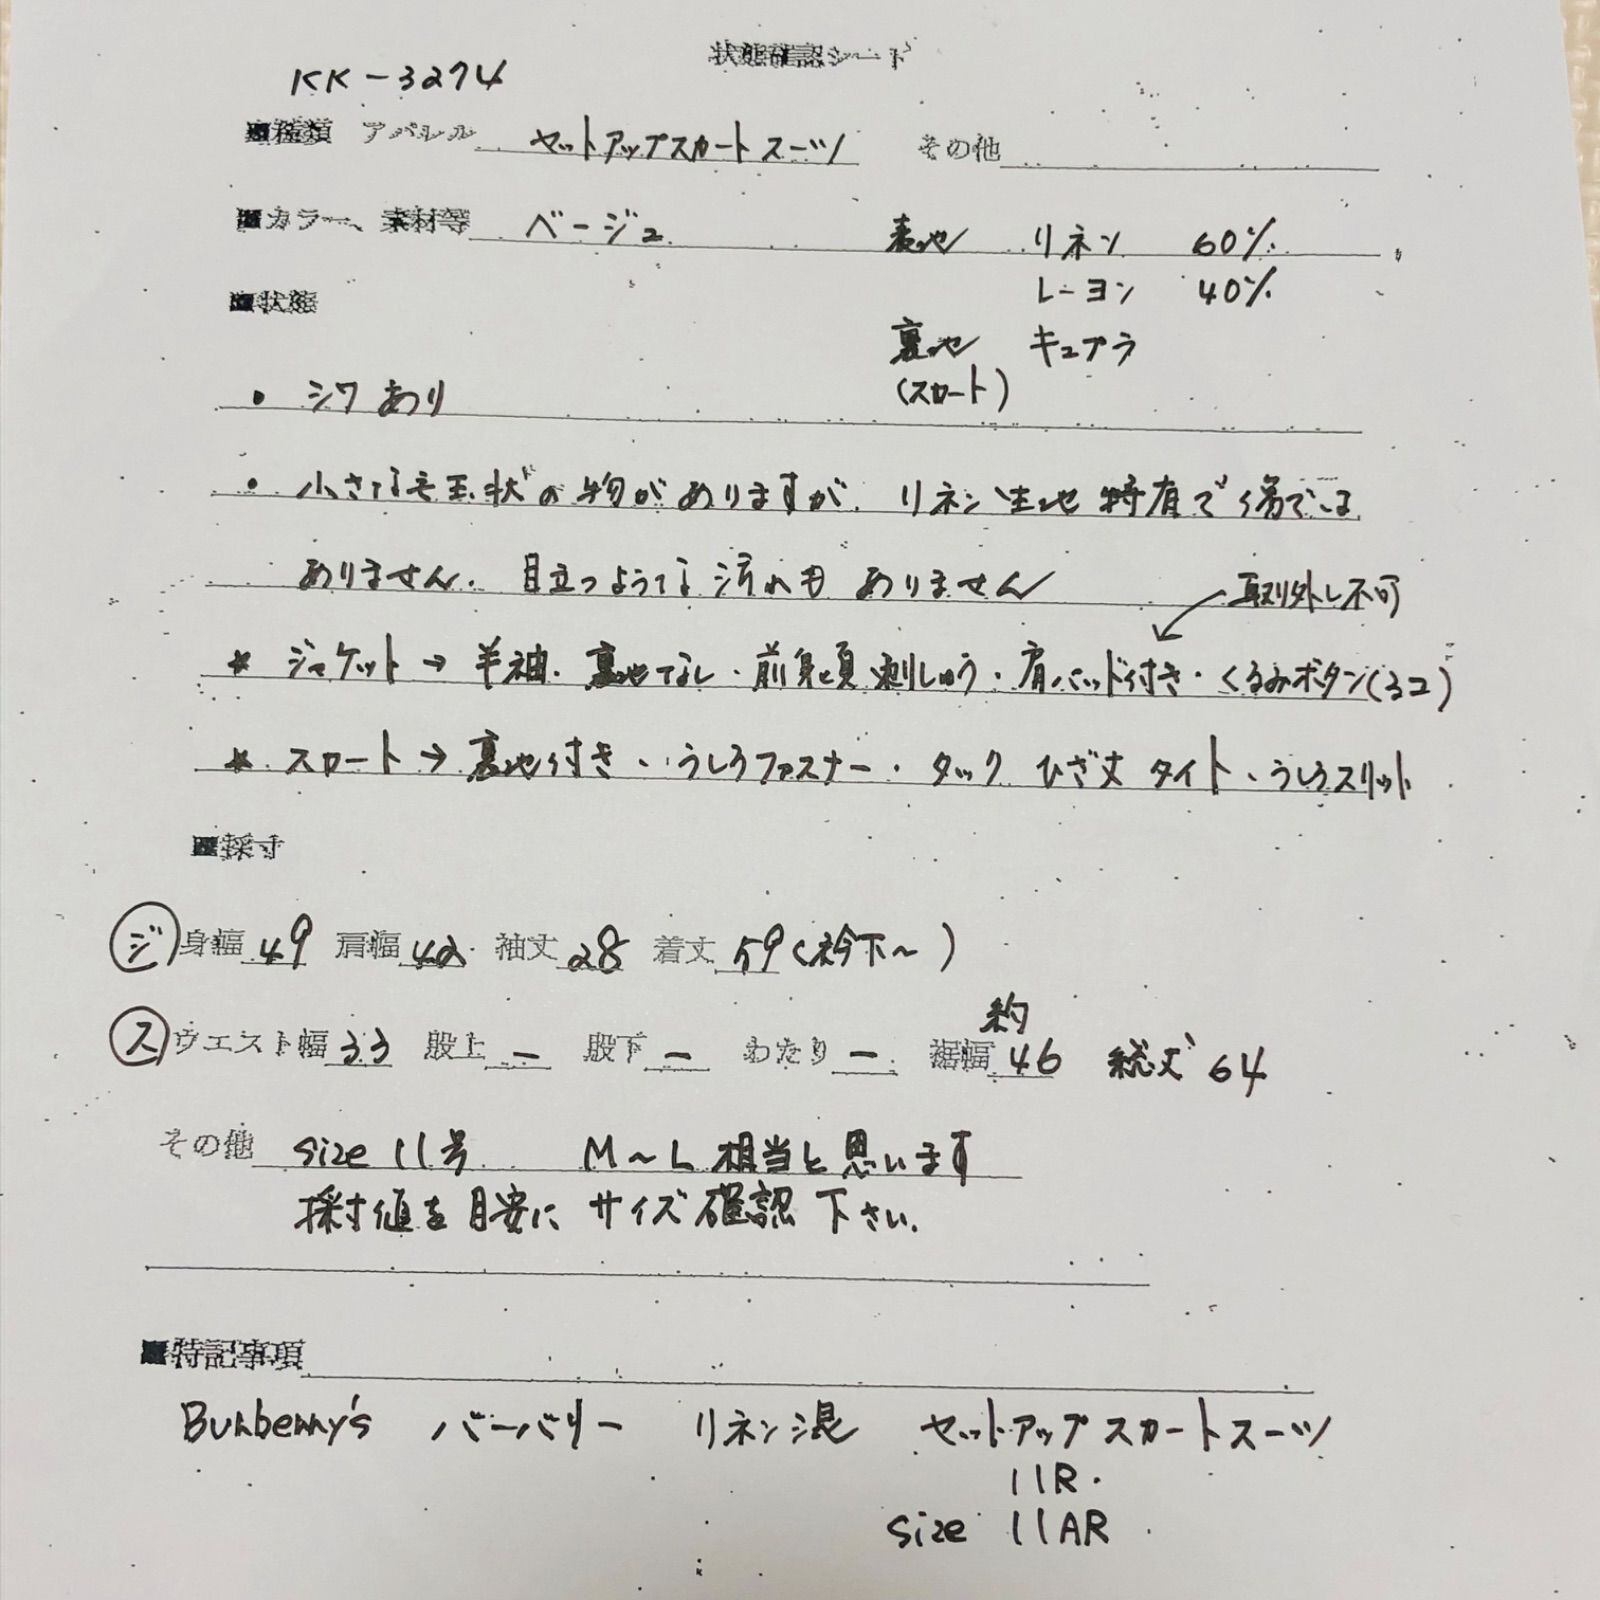 状態確認シート
KK-3274
■種類 アパレル セットアップスカートスーツ その他
■カラー、素材等 ベージュ 表地 リネン 60%
レーヨン 40%
■状態
裏地 キュプラ
(スカート)
・シワあり
・小さな毛玉状の物がありますが、リネン生地特有で傷では
ありません。目立つような汚れもありません
取り外し不可
* ジャケット→半袖・裏地なし・前身頃刺しゅう・肩パッド付き・くるみボタン(3コ)
* スカート→裏地付き・うしろファスナー・タック ひざ丈 タイト、うしろスリット
■採寸
ジ 身幅 49 肩幅 42 袖丈 28 着丈 59(衿下〜)
約
ス ウエスト幅 33 股上 - 股下 - わたり - 裾幅 46 総丈 64
その他 size 11号 M〜L相当と思います
採寸値を目安にサイズ確認下さい。
■特記事項
Burberry's バーバリー リネン混 セットアップスカートスーツ
11R.
size 11AR